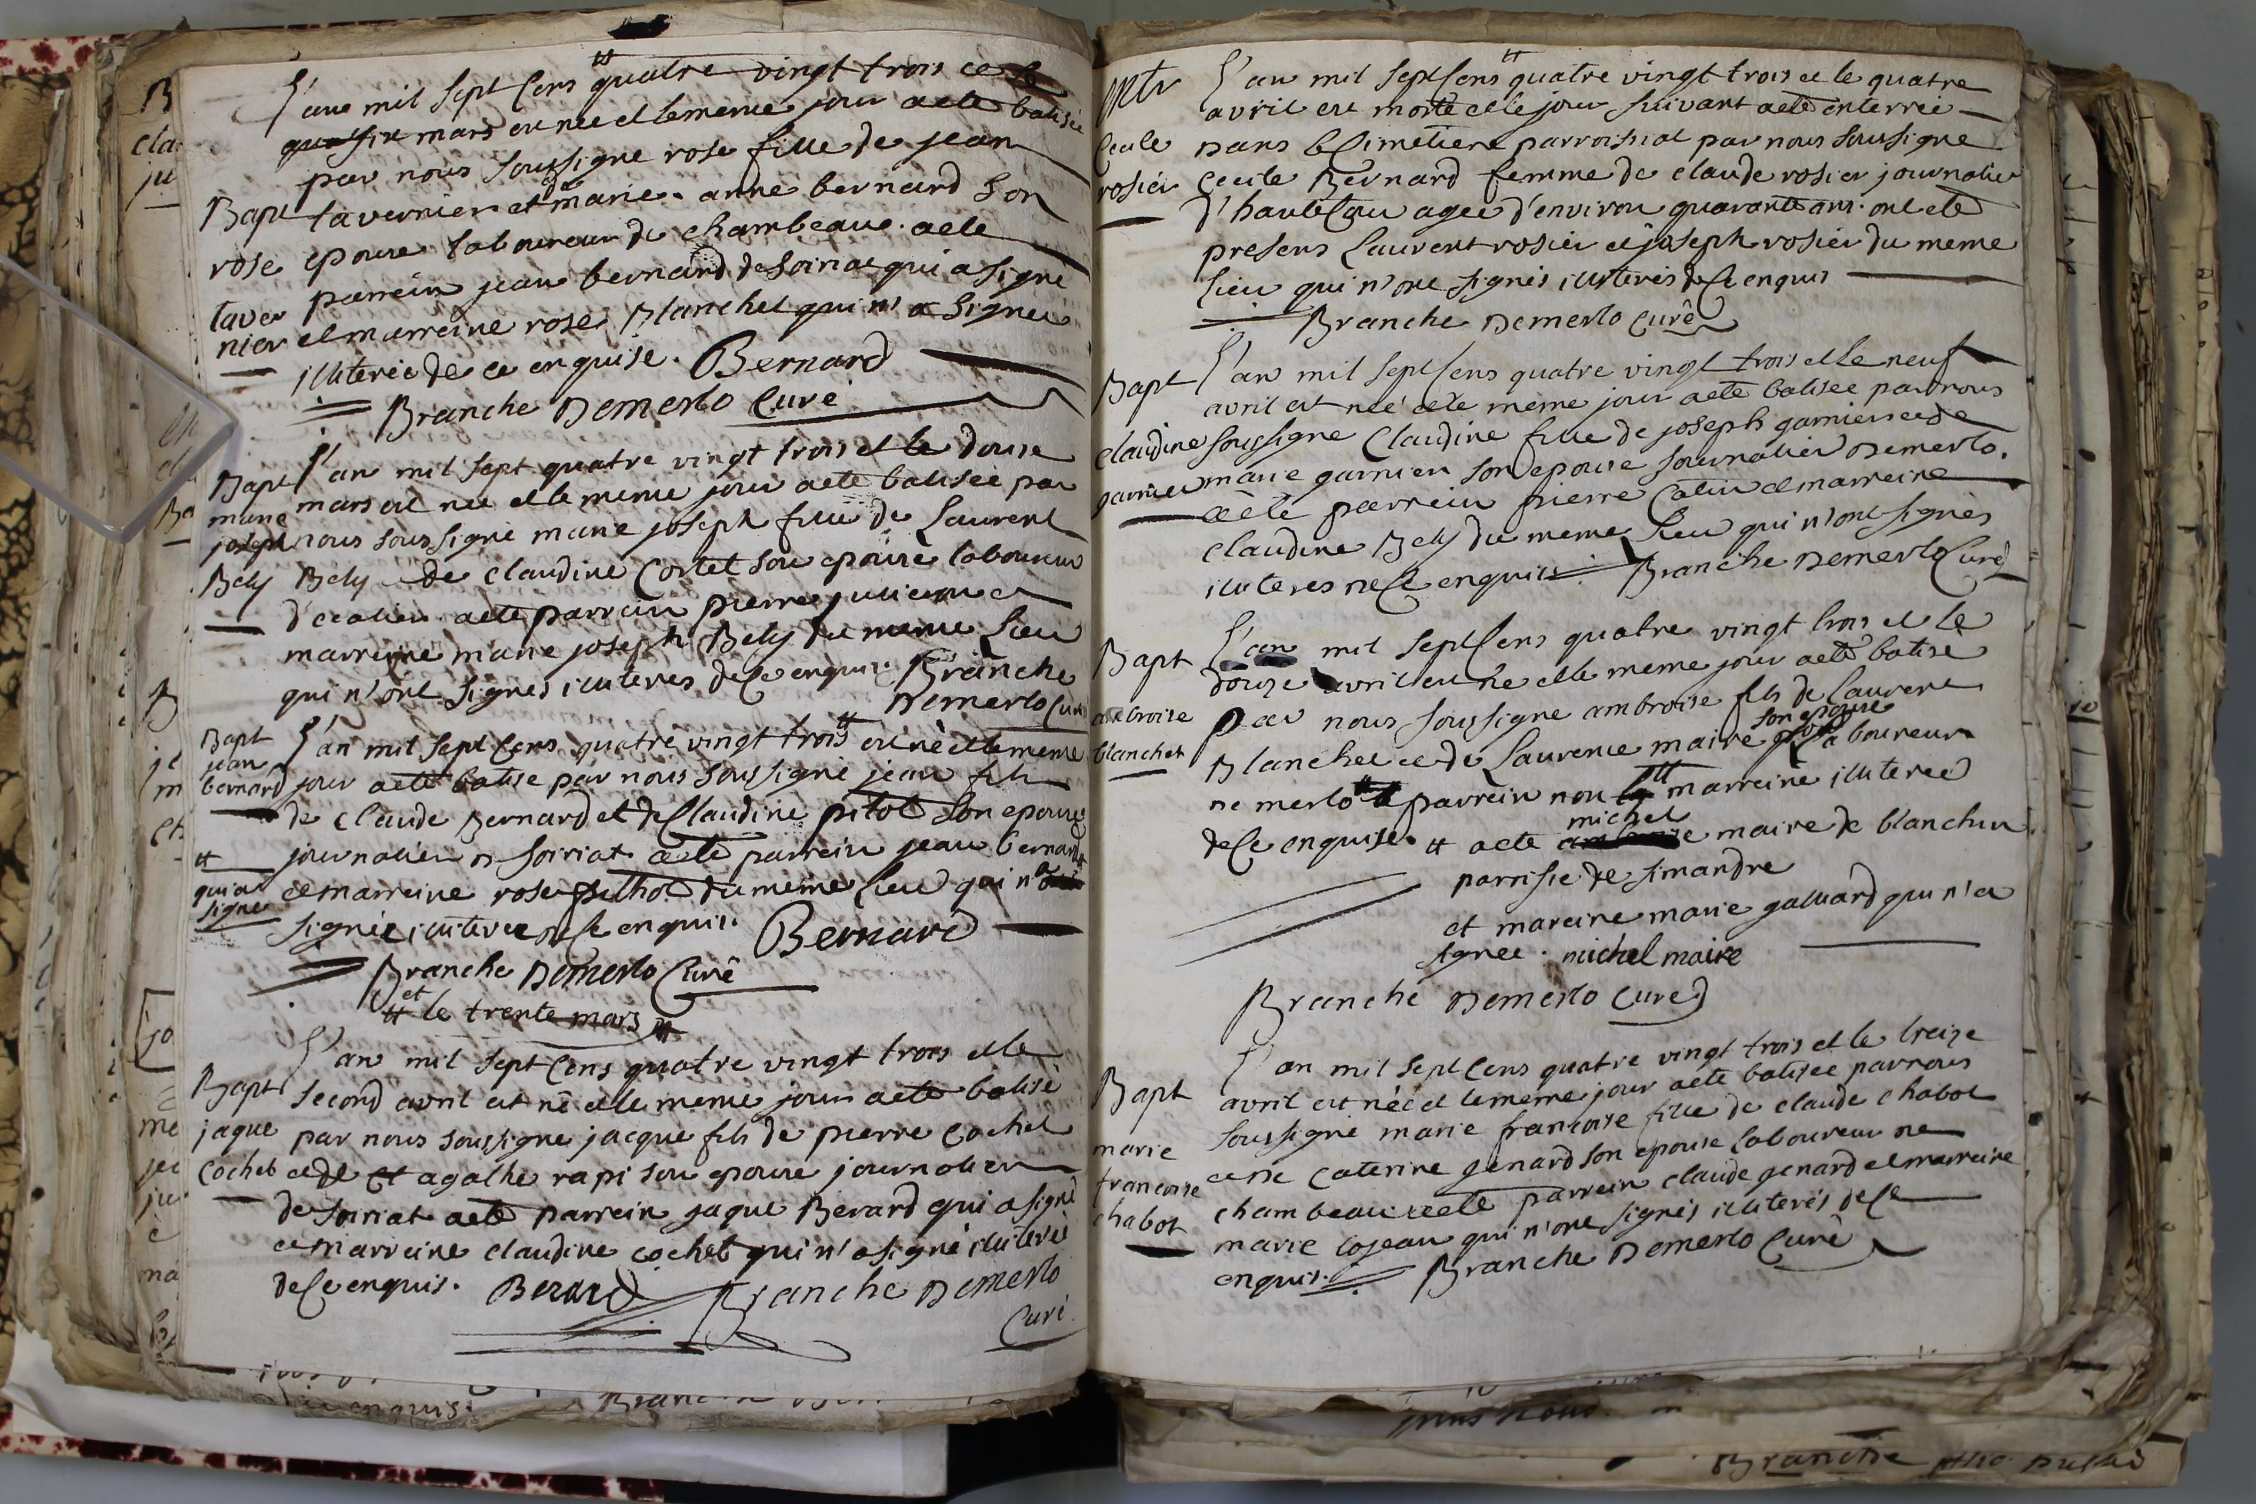 L'an mil sept Cens quatre vingt trois ce le
six mars est née et le meme jour a eté batisée
par nous soussigne rose fille de jean
Bapt tavernier et de marie anne bernard son
rose epouse laboureur de chambeaue a eté
taver parrein jean bernard de soiriat qui a signé
nier et marreine rose Blanchet qui n'a signée
illiterée de ce enquise. Bernard
Branche Demerlo Curé
Bapt L'an mil sept quatre vingt trois et le douse
marie mars est née et le meme jour a eté batisée par
joseph nous soussigné marie joseph fille de Laurent
Bely Bely de claudine Cortet son epouse laboureur
a eté parrein pierre et
marreine marie joseph Bely du meme Lieu
qui n'ont signés illiterés de Ce enquis Branche
Demerlo Curé
Bapt L'an mil sept Cens quatre vingt trois # est né et le meme
jean
bernard jour a eté batisé par nous soussigné jean fils
de claude Bernard et de Claudine pitot son epouse
journalier D soiriat a eté parrein jean bernard #
# qui a et marreine rose pilhot du meme Lieu qui n'a
signé signée illiterée de Ce enquis. Bernard
Branche Demerlo Curé
# et le trente mars #
L'an mil sept Cens quatre vingt trois et le
Bapt second avril est né et le meme jour a eté batisé
jaque par nous soussigne jacque fils de pierre cochet
cochet et de agathe rapi son epouse journalier
de soiriat a eté parrein jaque Berard qui a signé
et marreine claudine cochet qui n'a signé illiterée
de Ce enquis. Berard Branche Demerlo
Curé
Mtr L'an mil sept Cens quatre vingt trois et le quatre
avril est morte et le jour suivant a eté enterrée
Cecile dans le Cimetiere parroissial par nous soussigné
rosier Cecile Bernard femme de claude rosier journalier
d'hauteCour agée d'environ quarante ans. ont eté
presens Laurent rosier et joseph rosier du meme
Lieu qui n'ont signés illiterés de Ce enquis
Branche Demerlo Curé
Bapt L'an mil sept Cens quatre vingt trois et le neuf
avril est née et le meme jour a eté batisée par nous
claudine soussigne Claudine fille de joseph garnier et de
garnier marie garnier son epouse journalier Demerlo.
a eté parrein pierre et marreine
claudine Bely du meme Lieu qui n'ont signés
illiteres de Ce enquis Branche Demerlo Curé
L'an mil sept Cens quatre vingt trois et le
Bapt douze avril est né et le meme jour a eté batisé
ambroise par nous soussigne ambroise fils de Laurent
blanchet Blanchet et de Laurence maire son epouse laboureur
de merlo # parrein non marreine illiterée
de Ce enquise # a eté michel maire de blanchin
parrisse de simandre
et mareine marie galliard qui n'a
signée. michel maire
Branche Demerlo Curé
L'an mil sept Cens quatre vingt trois et le treize
Bapt avril est née et le meme jour a eté batisée par nous
soussigné marie francoise fille de claude chabot
marie et de Caterine genard son epouse laboureur de
francoise chambeau a eté parrein claude genard et marreine
chabot marie qui n'ont signés illiterés de Ce
enquis. Branche Demerlo Curé